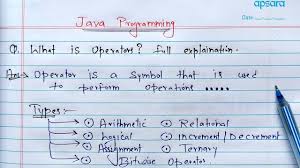 apsara
Date
Java Programming
Q. What is Operators? full explaination.
Ans → Operator is a symbol that is used
to perform operations .....
Types:-
→ ⊙ Arithmetic ⊙ Relational
→ ⊙ Logical ⊙ Increment/Decrement
→ ⊙ Assignment ⊙ Ternary
→ ⊙ Bitwise Operator.